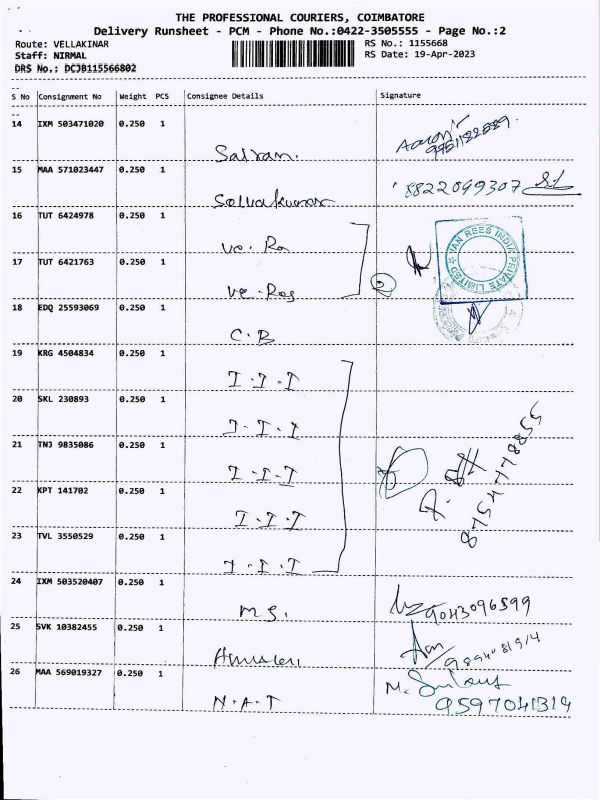 THE PROFESSIONAL COURIERS, COIMBATORE
Delivery Runsheet - PCM - Phone No.:0422-3505555 - Page No.:2
Route: VELLAKINAR
RS No.: 1155668
Staff: NIRMAL
RS Date: 19-Apr-2023
DRS No.: DCJB115566802
S No Consignment No Weight PCS Consignee Details Signature
14 IXM 503471020 0.250 1
15 MAA 571023447 0.250 1
8822099307
16 TUT 6424978 0.250 1
VAN REES INDIA PRIVATE LIMITED
17 TUT 6421763 0.250 1
2
18 EDQ 25593069 0.250 1
C.B
19 KRG 4504834 0.250 1
I.I.I
20 SKL 230893 0.250 1
I.I.I
21 TNJ 9835086 0.250 1
I.I.I
22 KPT 141702 0.250 1
I.I.I
23 TVL 3550529 0.250 1
I.I.I
24 IXM 503520407 0.250 1
M S.
9043096599
25 SVK 10382455 0.250 1
26 MAA 569019327 0.250 1
N.A.T
9597041319